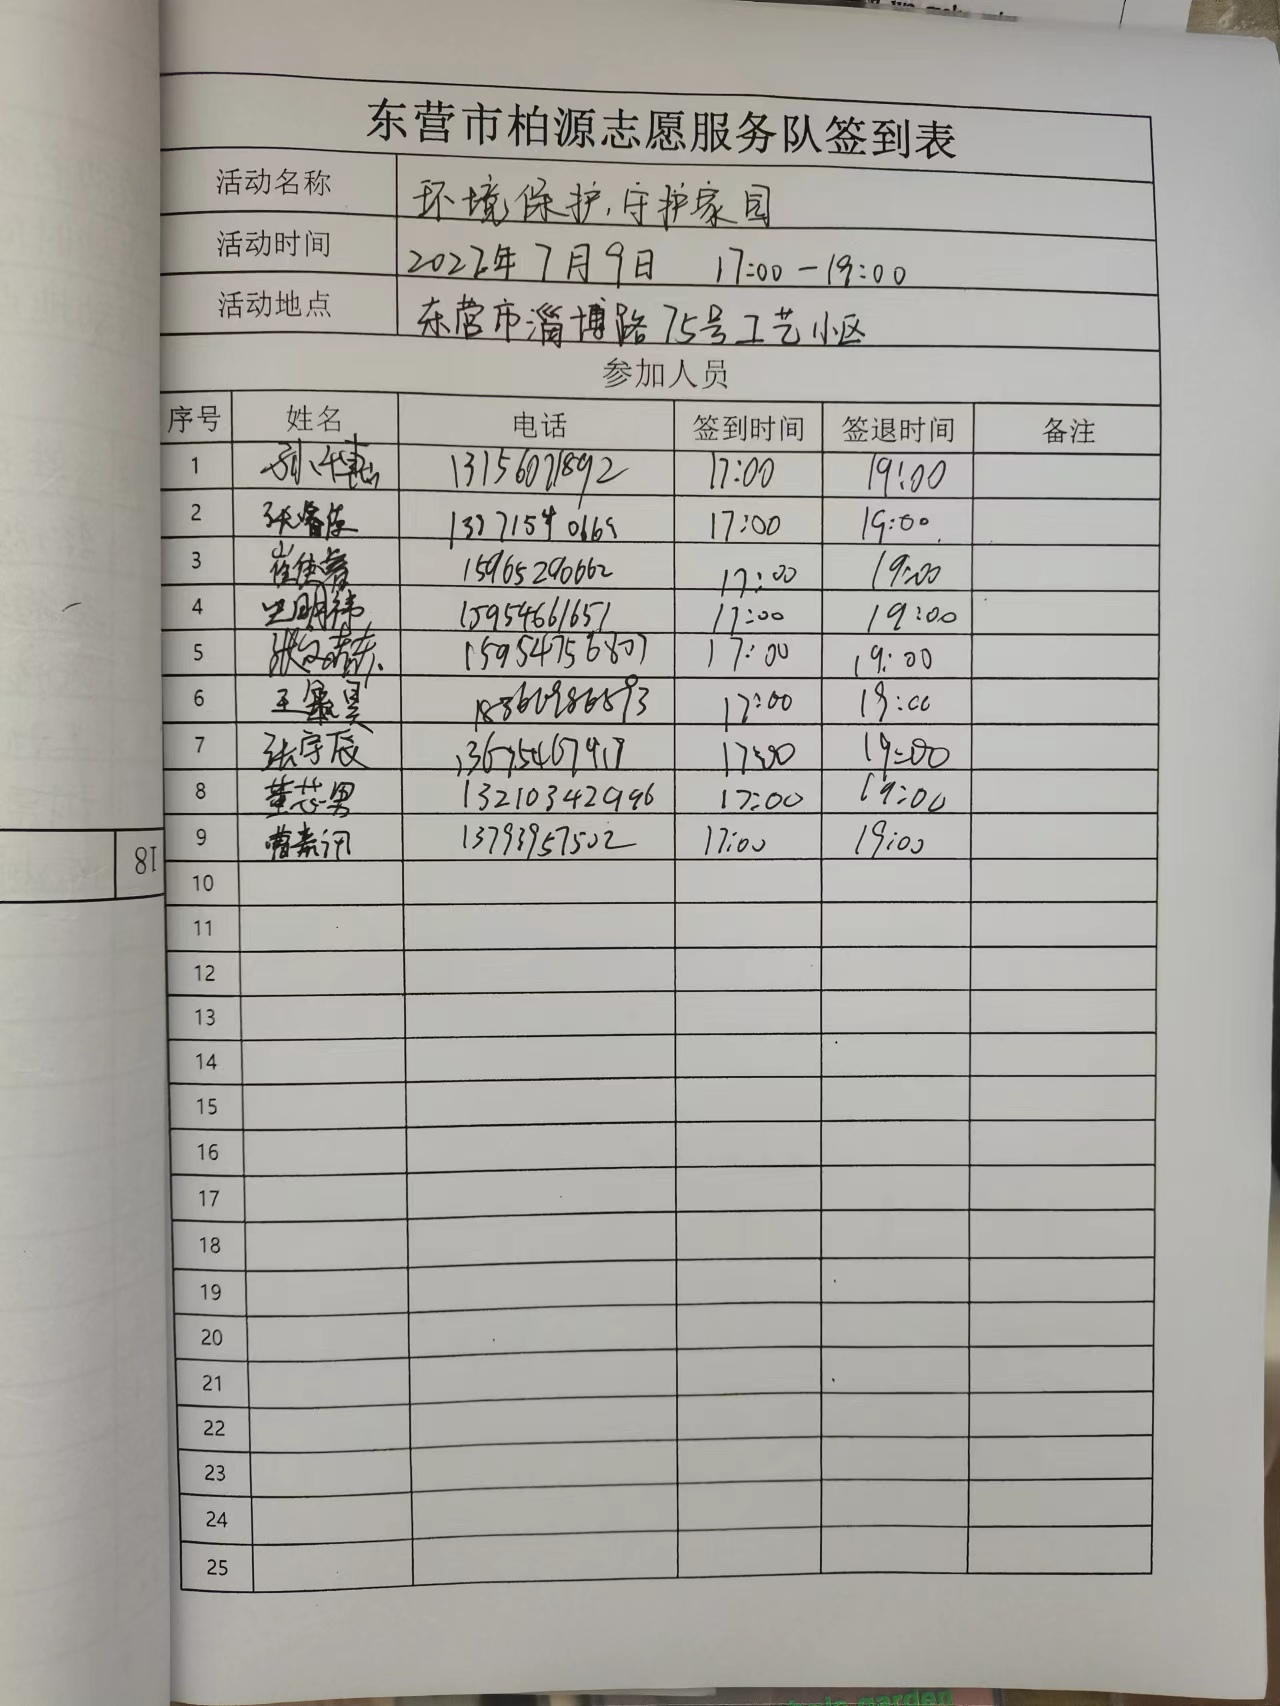 东营市柏源志愿服务队签到表
活动名称 环境保护,守护家园
活动时间 2022年7月9日 17:00-19:00
活动地点 东营市淄博路75号工艺小区
参加人员
序号 姓名 电话 签到时间 签退时间 备注
1 13156071892 17:00 19:00
2 17:00 19:00
3 15965290662 17:00 19:00
4 15954661651 17:00 19:00
5 15954756807 17:00 19:00
6 17:00 19:00
7 张宇辰 17:00 19:00
8 董芯男 13210342996 17:00 19:00
9 13793957502 17:00 19:00
10
11
12
13
14
15
16
17
18
19
20
21
22
23
24
25
18